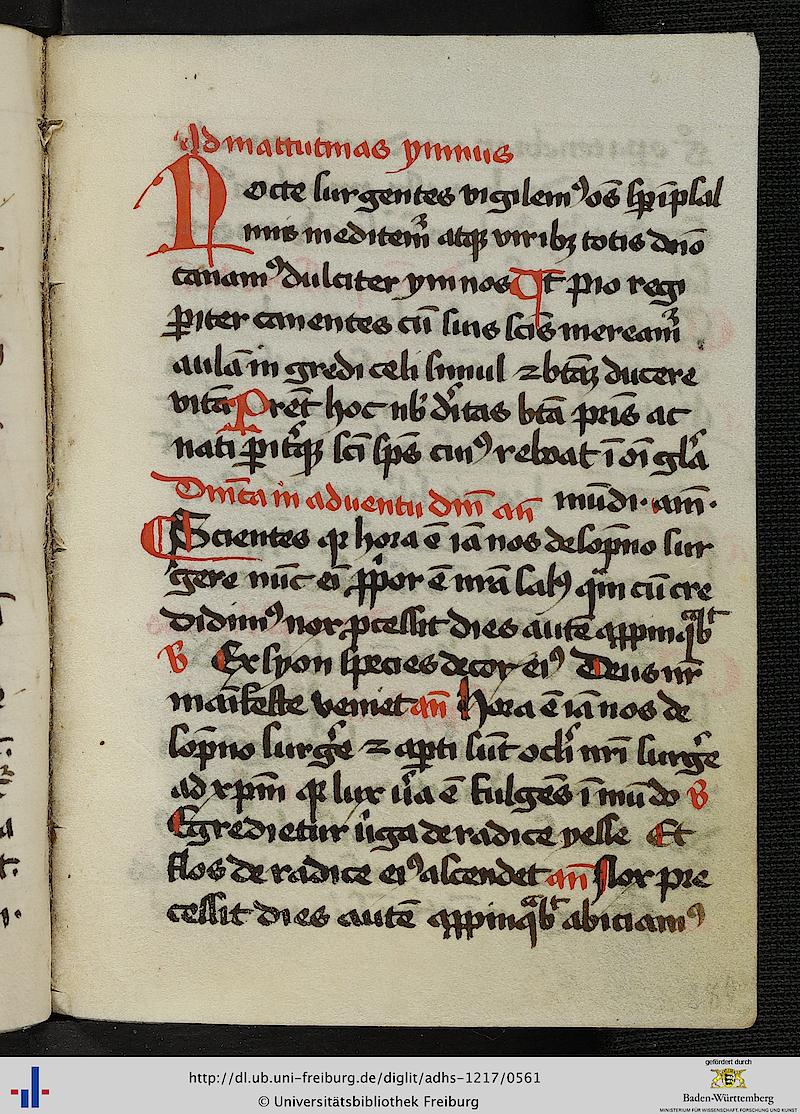 Ad mattutinas ymnus
Nocte surgentes vigilemꝰ oēs sp̄ ī psal
mis meditem̄ atqꝫ viribꝫ totis dn̄o
canamꝰ dulciter ymnos Ut pio regi
ꝑiter canentes cū suis sc̄is mereām
aulā in gredi celi simul ⁊ btā̄ꝫ ducere
vitā Prēt hoc nb̄ dītas btā pr̄is ac
nati ꝑitqꝫ sc̄i sp̄s cuiꝰ reboat ī oī̄ gl̄a
Dn̄ica in adventu dn̄i an̄ mūdi · am̄ ·
Scientes qꝛ hora ē iā nos de sop̄no sur
gere nūc eī ꝓpor ē nrā salꝰ qm̄ cū cre
didimꝰ nox p̄cessit dies autē apppinqͣbͭ
℟ Ex syon species decor eiꝰ Deus nr̄
maīfeste veniet an̄ Hora ē iā nos de
sop̄no surge̓ ⁊ aꝑti sūt ocl̓i nr̄i surge̓
ad xp̄m qꝛ lux u̓a ē fulgēs ī mūdo ℟
Egredietur u̓ga de radice yesse Et
flos de radice eiꝰ ascendet an̄ Nox pre
cessit dies autē apppinqͣbͭ abiciamꝰ
http://dl.ub.uni-freiburg.de/diglit/adhs-1217/0561
© Universitätsbibliothek Freiburg
gefördert durch
Baden-Württemberg
MINISTERIUM FÜR WISSENSCHAFT, FORSCHUNG UND KUNST